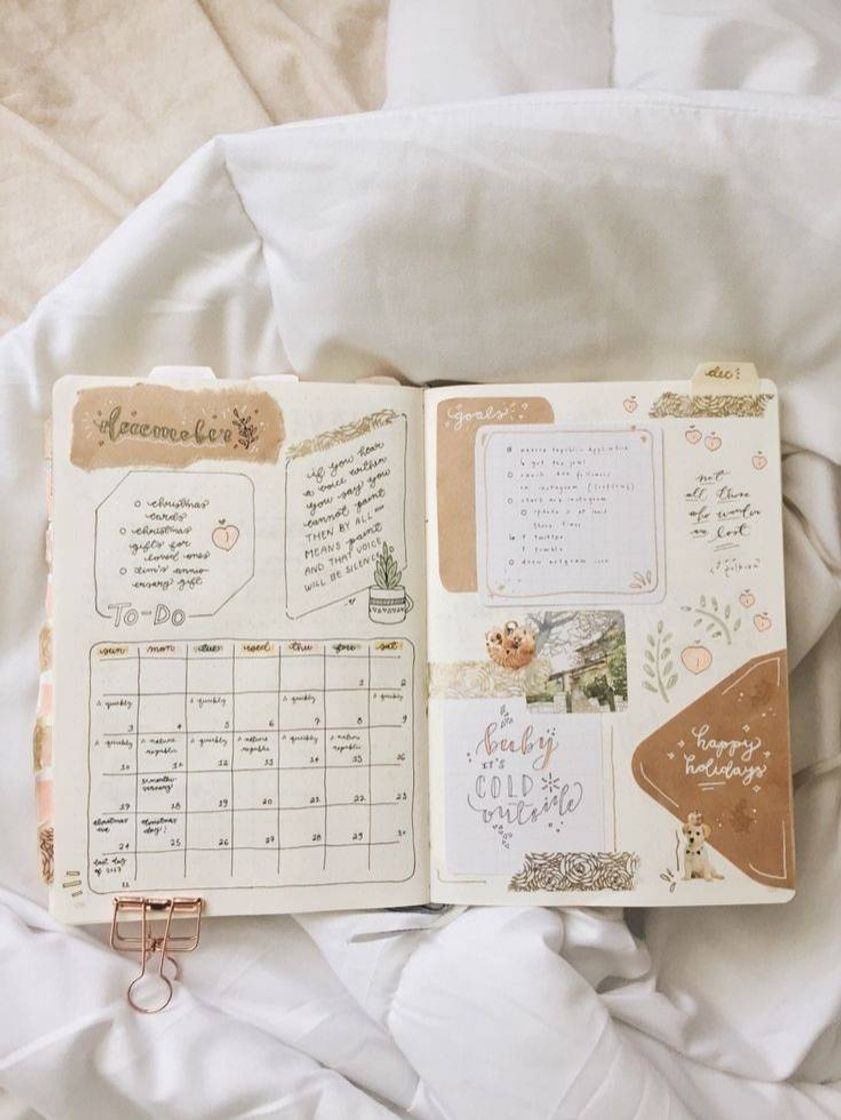 december
o christmas
cards
o christmas
gifts for
loved ones
o
gift
TO-DO
if you hear
a voice within
you say you
cannot paint
THEN BY ALL
MEANS paint
AND THAT VOICE
WILL BE SILENCED
sun mon tue wed thu fri sat
1 2
3 4 5 6 7 8 9
nature
republic
nature
republic
nature
republic
10 11 12 13 14 15 16
17 18 19 20 21 22 23
christmas
eve
christmas
day!
24 25 26 27 28 29 30
last day
of 2017
31
dec:
goals
nature republic application
get the job!
start an instagram
update it at least
twitter
tumblr
not
all those
who wander
are lost
baby
IT'S
COLD
outside
happy
holidays